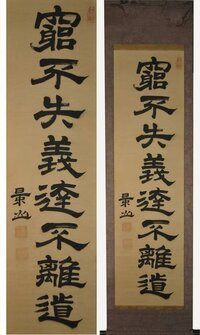 窮不失義達不離道
景山
窮不失義達不離道
景山